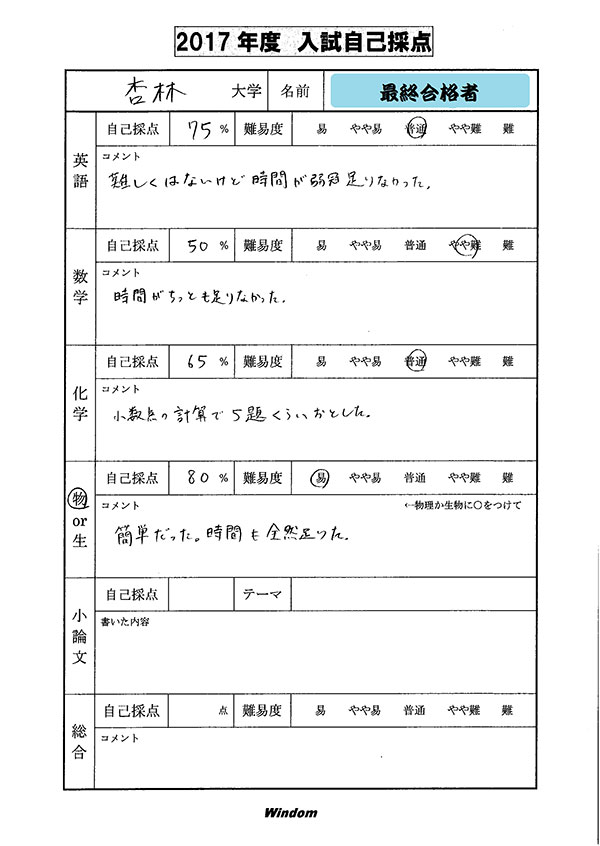 2017年度 入試自己採点
杏林 大学 名前 最終合格者
英語
自己採点 75 % 難易度 易 やや易 普通 やや難 難
コメント
難しくはないけど時間が弱冠足りなかった。
数学
自己採点 50 % 難易度 易 やや易 普通 やや難 難
コメント
時間がちっとも足りなかった。
化学
自己採点 65 % 難易度 易 やや易 普通 やや難 難
コメント
小数点の計算で5題くらいおとした。
物or生
自己採点 80 % 難易度 易 やや易 普通 やや難 難
コメント ←物理か生物に○をつけて
簡単だった。時間も全然足りた。
小論文
自己採点 テーマ
書いた内容
総合
自己採点 点 難易度 易 やや易 普通 やや難 難
コメント
Windom